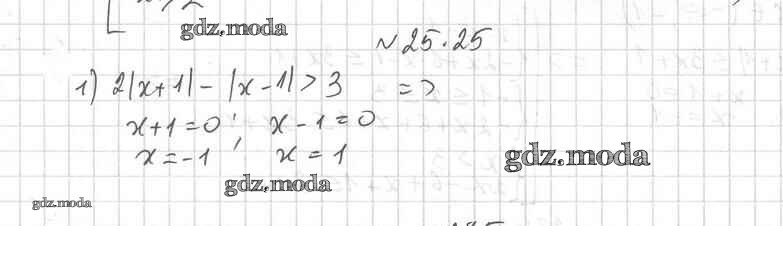 gdz.moda
№ 25.25
1) 2|x+1| - |x-1| > 3 =>
x+1=0; x-1=0
x=-1 x=1
gdz.moda
gdz.moda
gdz.moda